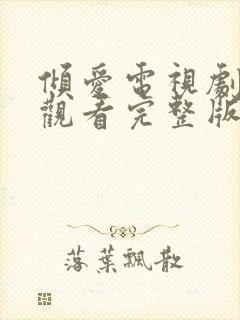 傾愛電視劇
觀看完整版
落葉飄散